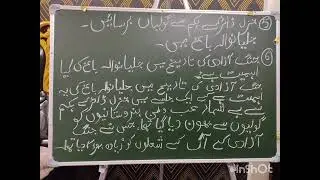 ⑤ جنرل ڈائر کے حکم سے گولیاں برسائیں۔
جلیانوالہ باغ میں۔
⑥ جنگ آزادی کی تاریخ میں جلیانوالہ باغ کی کیا
اہمیت ہے؟
جنگ آزادی کی تاریخ میں جلیانوالہ باغ کی یہ
اہمیت ہے کہ ایک جلسے میں جنرل ڈائر کے حکم
سے بے شمار ہندوستانیوں کو
گولیوں سے بھون دیا گیا تھا، جس نے جنگ
آزادی کی آگ کے شعلوں کو زیادہ بھڑکا دیا تھا۔
InShOt